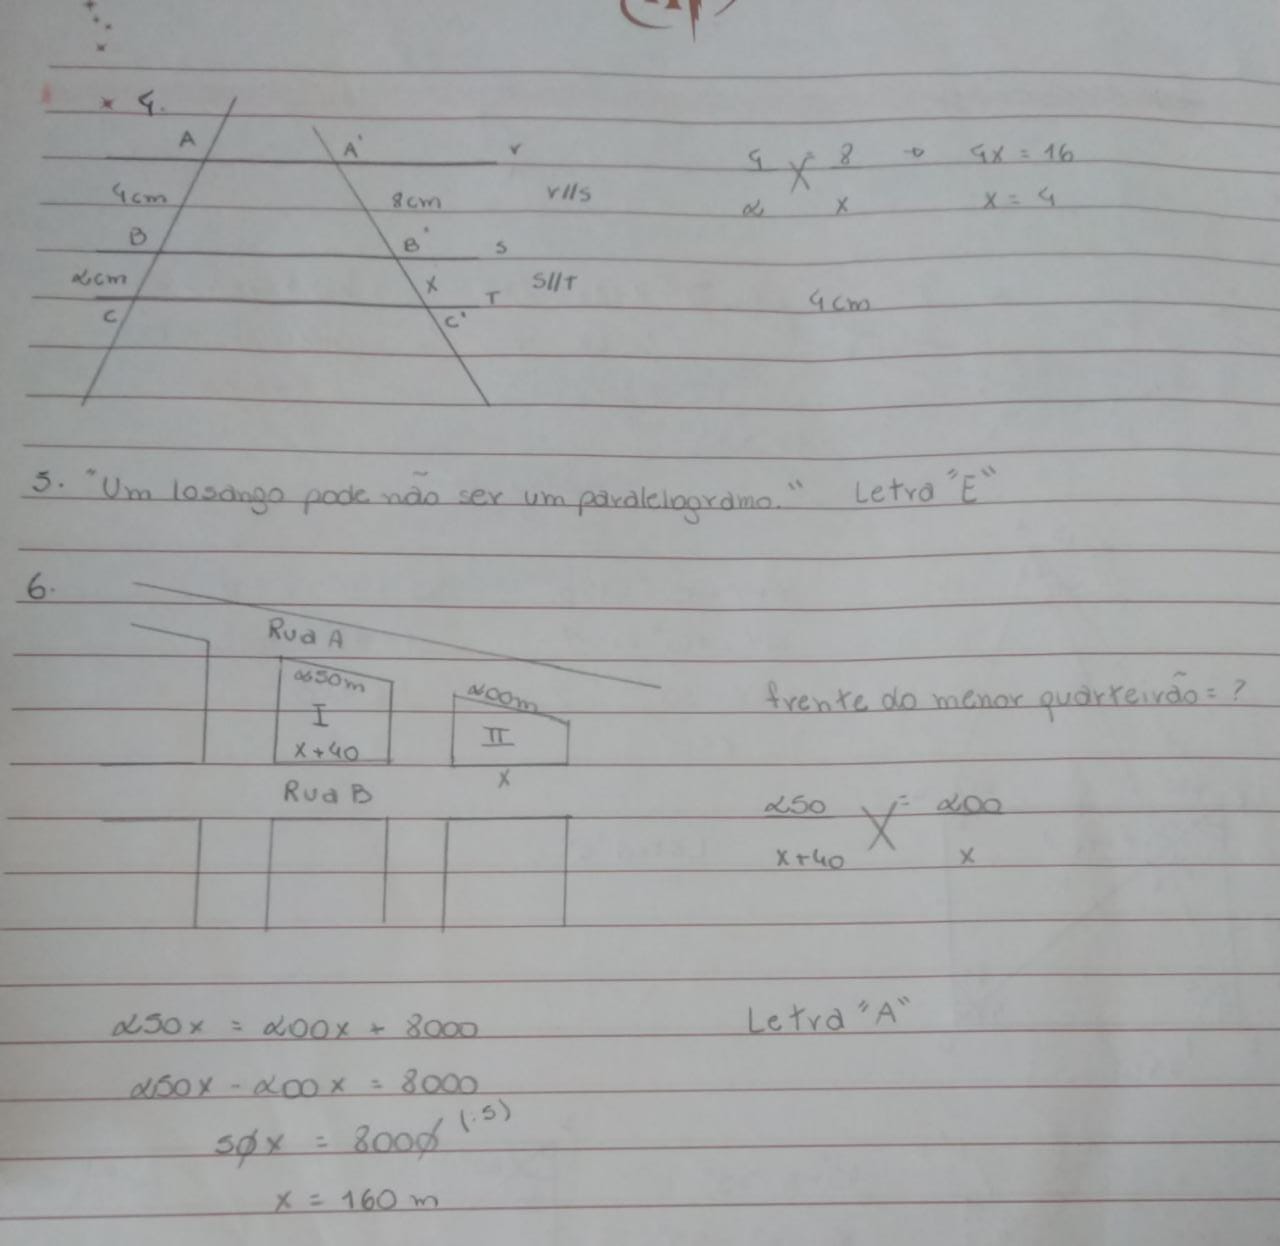 4.
A A' r
4cm 8cm r//s
B B' s
2cm x s//T
C C' T
4 = 8 → 4x = 16
2 x x = 4
4cm
5. "Um losango pode não ser um paralelogramo." Letra "E"
6.
Rua A
250m 200m
I II
x+40 x
Rua B
frente do menor quarteirão = ?
250 = 200
x+40 x
250x = 200x + 8000
250x - 200x = 8000
50x = 8000 (:5)
x = 160 m
Letra "A"